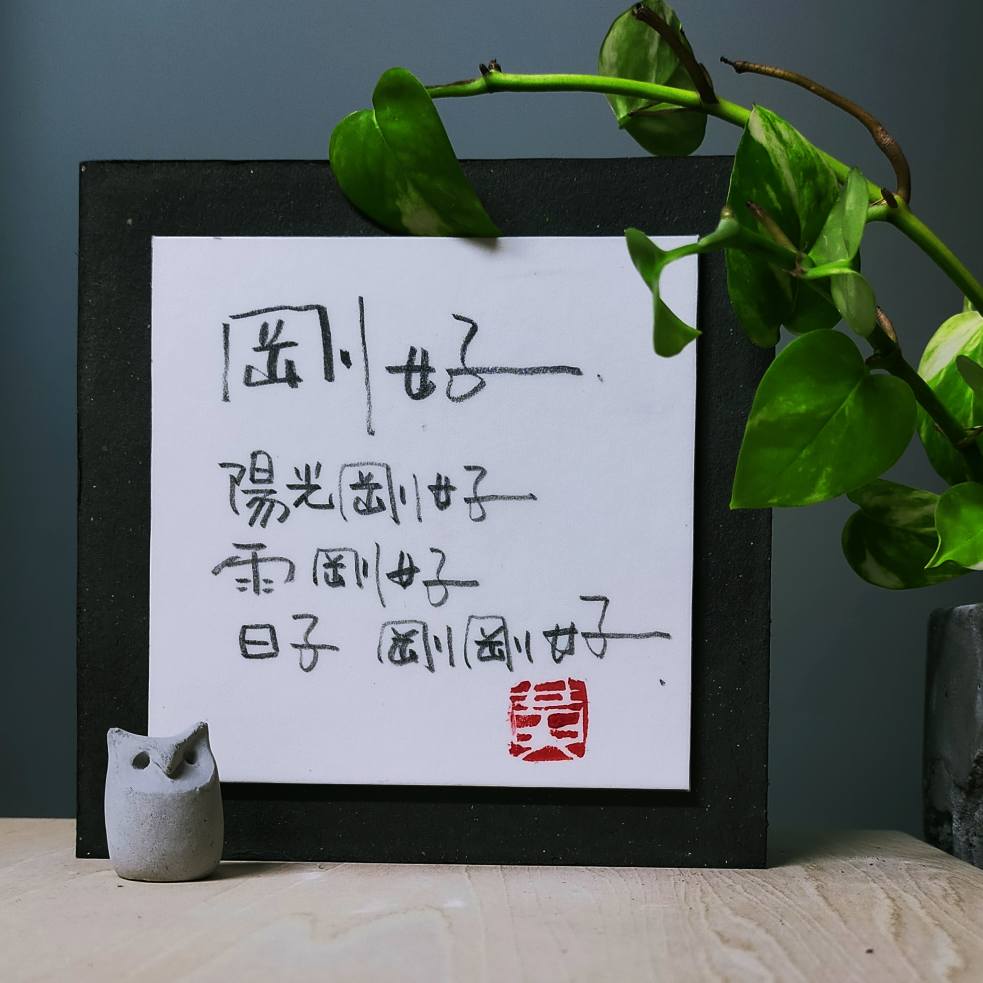 剛好
陽光剛好
雲剛好
日子 剛剛好